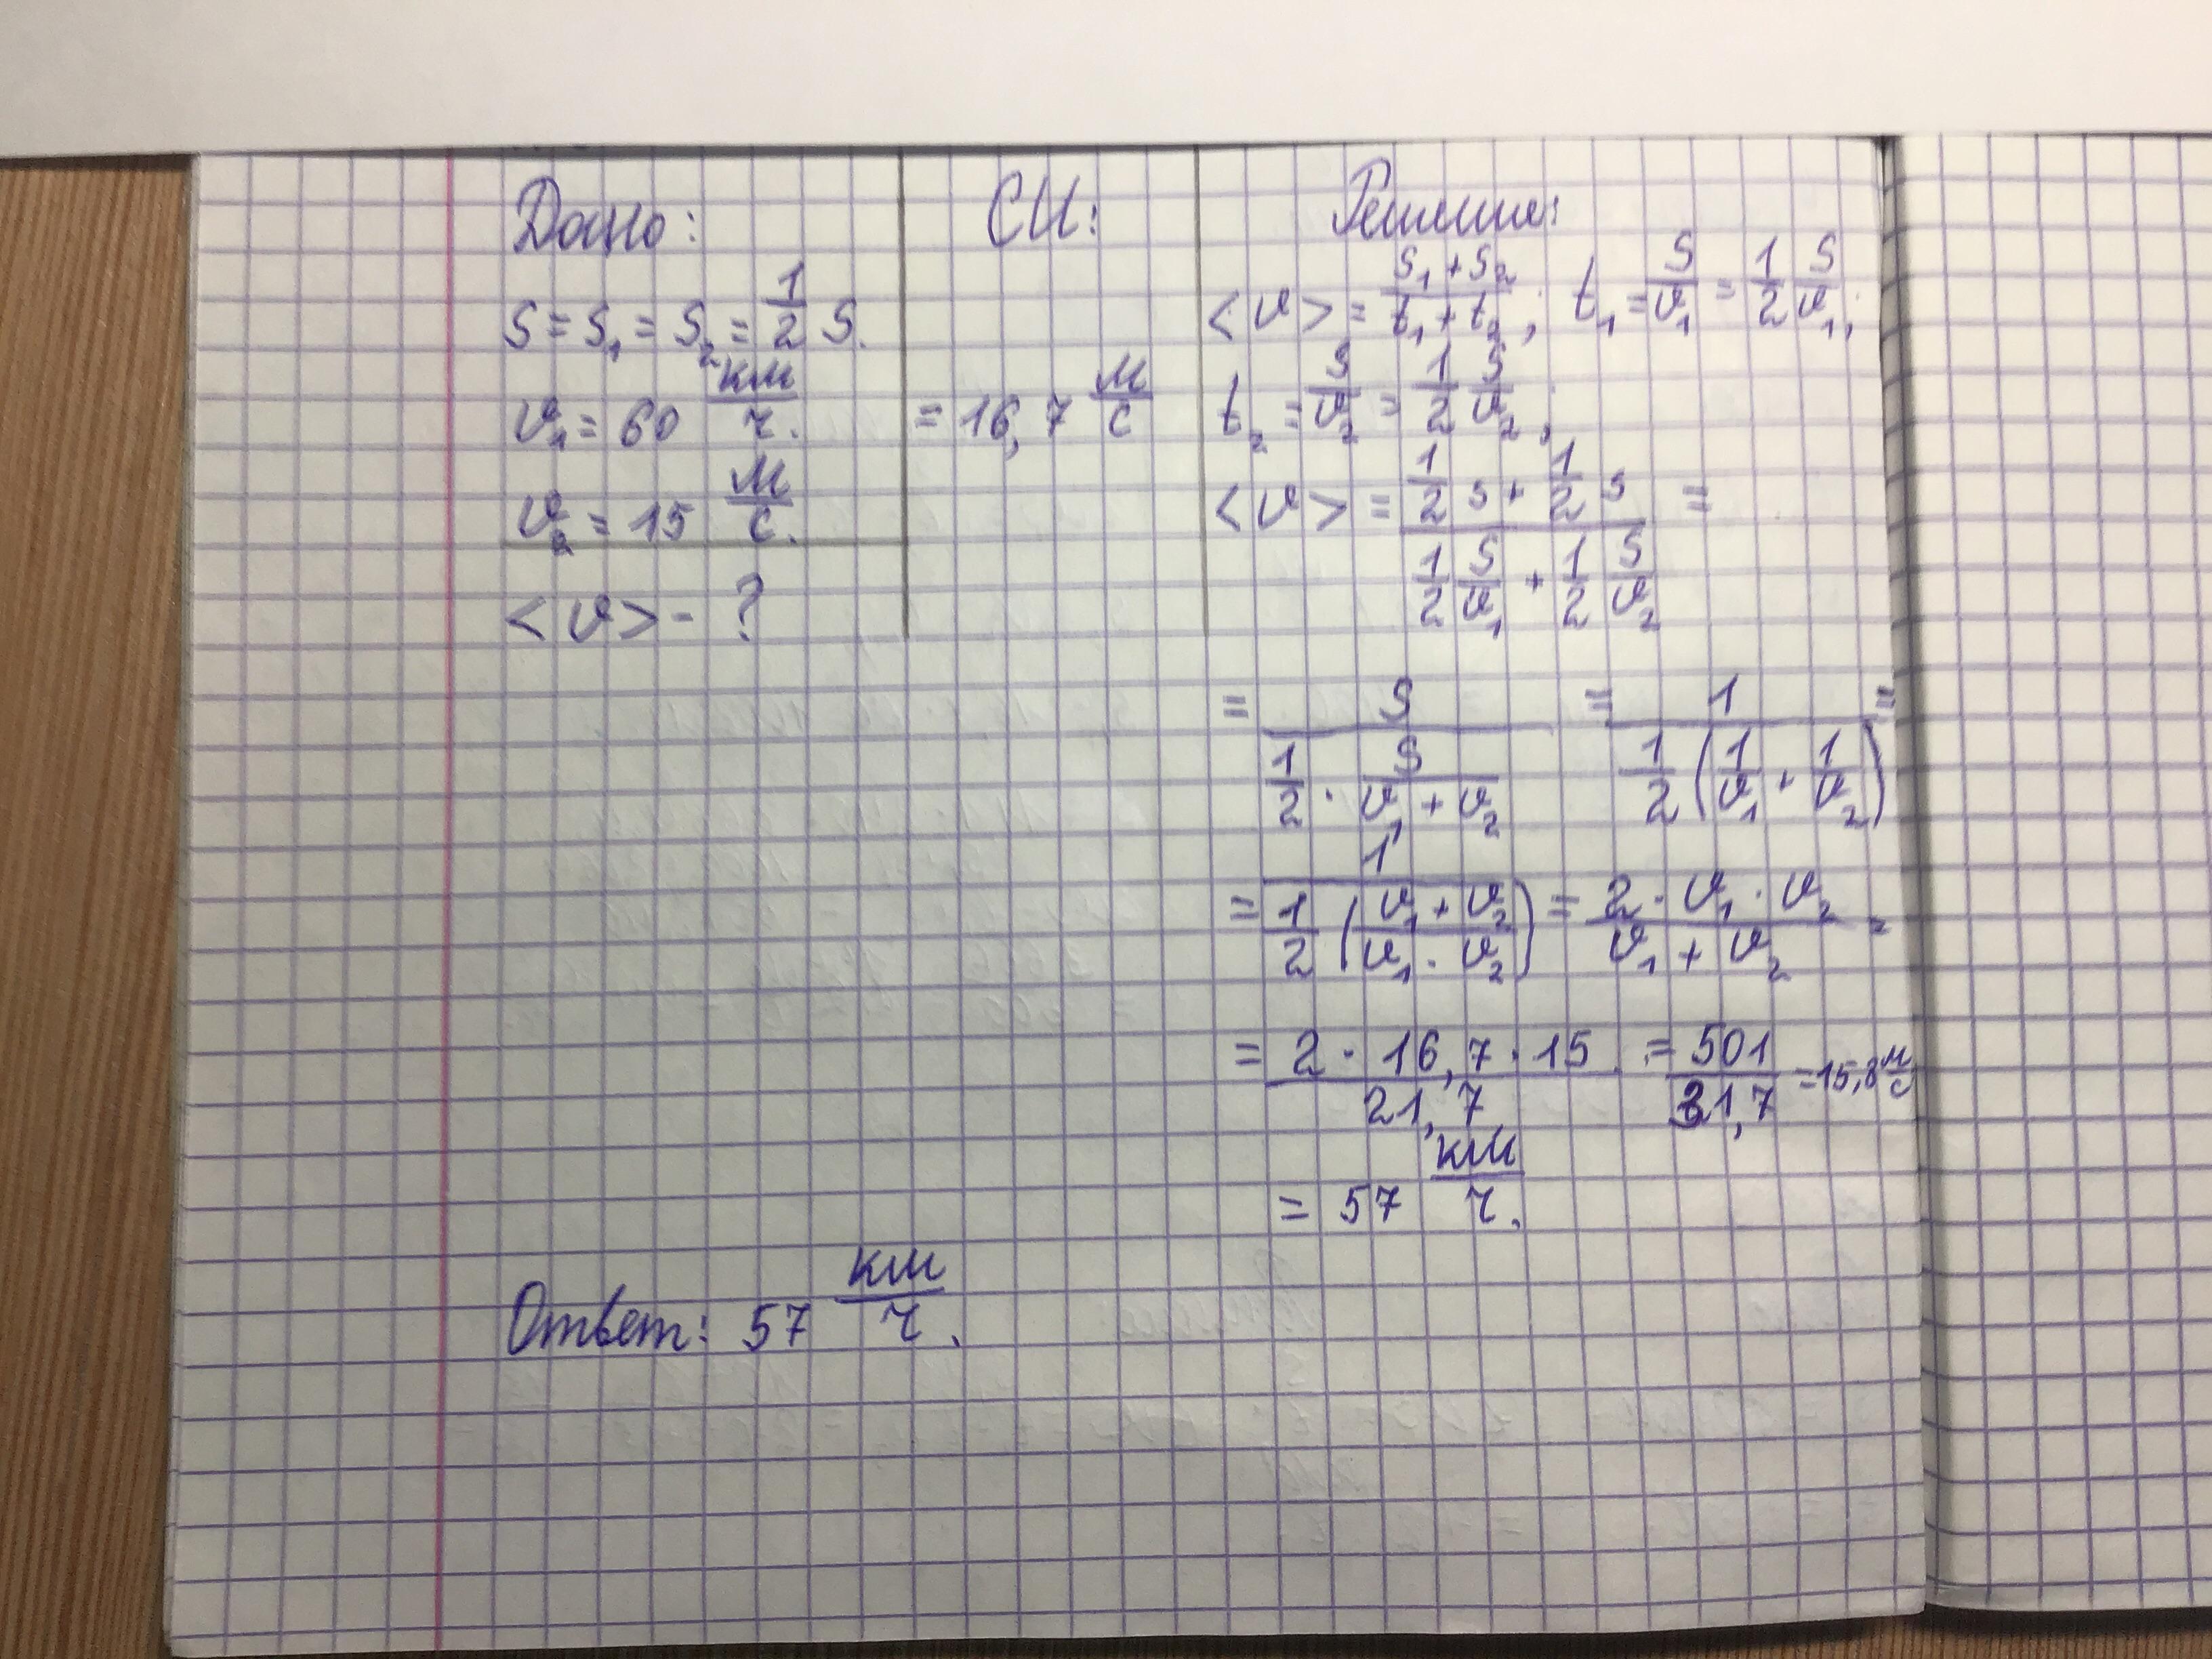 Дано:
S = S₁ = S₂ = 1/2 S.
υ₁ = 60 км/ч.
υ₂ = 15 м/с.
<υ> - ?
СИ:
= 16,7 м/с
Решение:
<υ> = (S₁ + S₂)/(t₁ + t₂); t₁ = S/υ₁ = 1/2 S/υ₁;
t₂ = S/υ₂ = 1/2 S/υ₂;
<υ> = (1/2 s + 1/2 s)/(1/2 S/υ₁ + 1/2 S/υ₂) =
= S/(1/2 · S/(υ₁ + υ₂)) = 1/(1/2 (1/υ₁ + 1/υ₂)) =
= 1/(1/2 ((υ₁ + υ₂)/(υ₁ · υ₂))) = (2 · υ₁ · υ₂)/(υ₁ + υ₂) =
= (2 · 16,7 · 15)/21,7 = 501/31,7 = 15,8 м/с
= 57 км/ч.
Ответ: 57 км/ч.